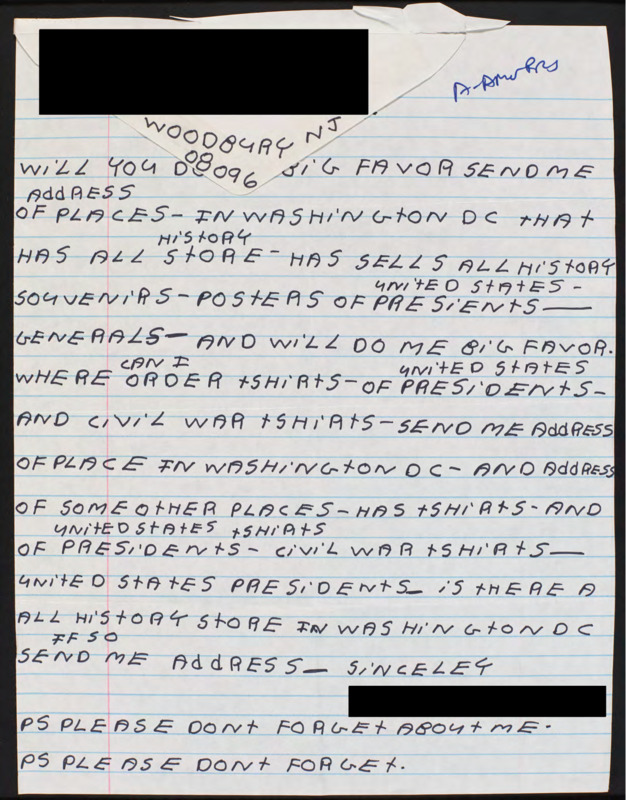 WOODBURY NJ
08096
WILL YOU DO BIG FAVOR SEND ME
ADDRESS
OF PLACES - IN WASHINGTON DC THAT
HISTORY
HAS ALL STORE - HAS SELLS ALL HISTORY
UNITED STATES -
SOUVENIRS - POSTERS OF PRESIENTS —
GENERALS - AND WILL DO ME BIG FAVOR.
CAN I UNITED STATES
WHERE ORDER TSHIRTS - OF PRESIDENTS -
AND CIVIL WAR TSHIRTS - SEND ME ADDRESS
OF PLACE IN WASHINGTON DC - AND ADDRESS
OF SOME OTHER PLACES - HAS TSHIRTS - AND
UNITED STATES TSHIRTS
OF PRESIDENTS - CIVIL WAR TSHIRTS —
UNITED STATES PRESIDENTS - IS THERE A
ALL HISTORY STORE IN WASHINGTON DC
IF SO
SEND ME ADDRESS - SINCELEY
PS PLEASE DONT FORGET ABOUT ME.
PS PLEASE DONT FORGET.